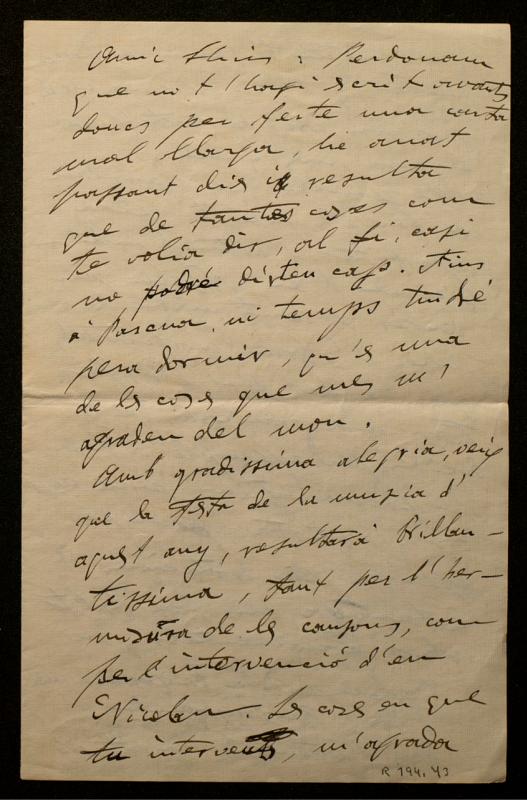 Amic Lluis: Perdonam
que no t'hagi escrit avants
doncs per ferte una carta
mal llarga, he anat
passant dies i resulta
que de tantas cozas com
te volia dir, al fi, casi
no podré dirten cap. Fins
á Pascua, ni temps tindré
pera dormir, qu'es una
de les coses que mes m'
agraden del mon.
Amb gradissima alegría, veig
que la festa de la musica d'
aquest any, resultará brillan-
tissima, tant per l'her-
mosura de les cansons, com
per l'intervenció d'en
Nicolau. Les cozes en que
tu intervens, m'agrada
R 194.43